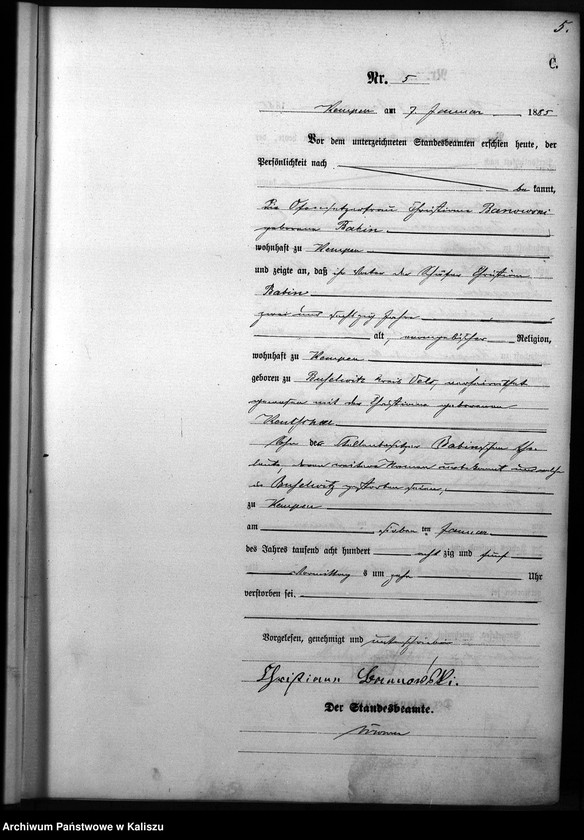 5.
C.
Nr. 5
Kempen am 7 Januar 1885
Vor dem unterzeichneten Standesbeamten erschien heute, der
Persönlichkeit nach
be kannt,
die Ofensetzerfrau Christiane Banowski
geborene Babin
wohnhaft zu Kempen
und zeigte an, daß ihr Vater der Schäfer Christian
Babin
zwei und achtzig Jahre
alt, evangelischer Religion,
wohnhaft zu Kempen
geboren zu Buselwitz Kreis Oels, verheirathet
gewesen mit der Christiane geborenen
Sohn des Stellenbesitzer Babinschen Ehe-
leute, deren weitere Namen unbekannt und welche
in Buselwitz gestorben seien,
zu Kempen
am sieben ten Januar
des Jahres tausend acht hundert acht zig und fünf
Vormittag s um zehn Uhr
verstorben sei.
Vorgelesen, genehmigt und unterschrieben
Christiane
Der Standesbeamte.
Archiwum Państwowe w Kaliszu